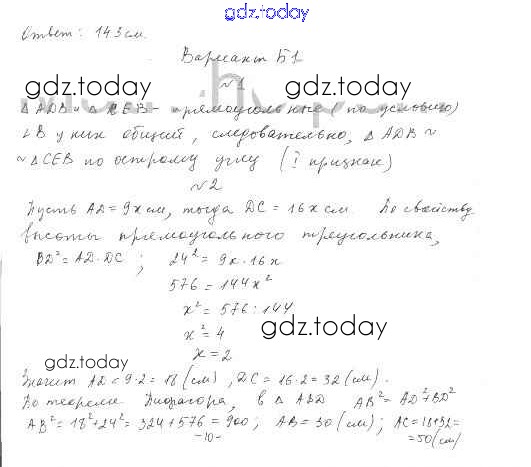 gdz.today
Ответ: 143 см.
Вариант Б1
gdz.today gdz.today
№1
△ADB и △CEB - прямоугольные (по условию)
∠B у них общий, следовательно, △ADB ~
~ △CEB по острому углу (I признак)
№2
Пусть AD = 9x см, тогда DC = 16x см. По свойству
высоты прямоугольного треугольника,
BD² = AD·DC ; 24² = 9x·16x
576 = 144x²
x² = 576 : 144
x² = 4
gdz.today
x = 2
gdz.today
Значит AD = 9·2 = 18 (см), DC = 16·2 = 32 (см).
По теореме Пифагора, в △ABD AB² = AD² + BD²
AB² = 18² + 24² = 324 + 576 = 900; AB = 30 (см); AC = 18+32 =
-10- = 50 (см)